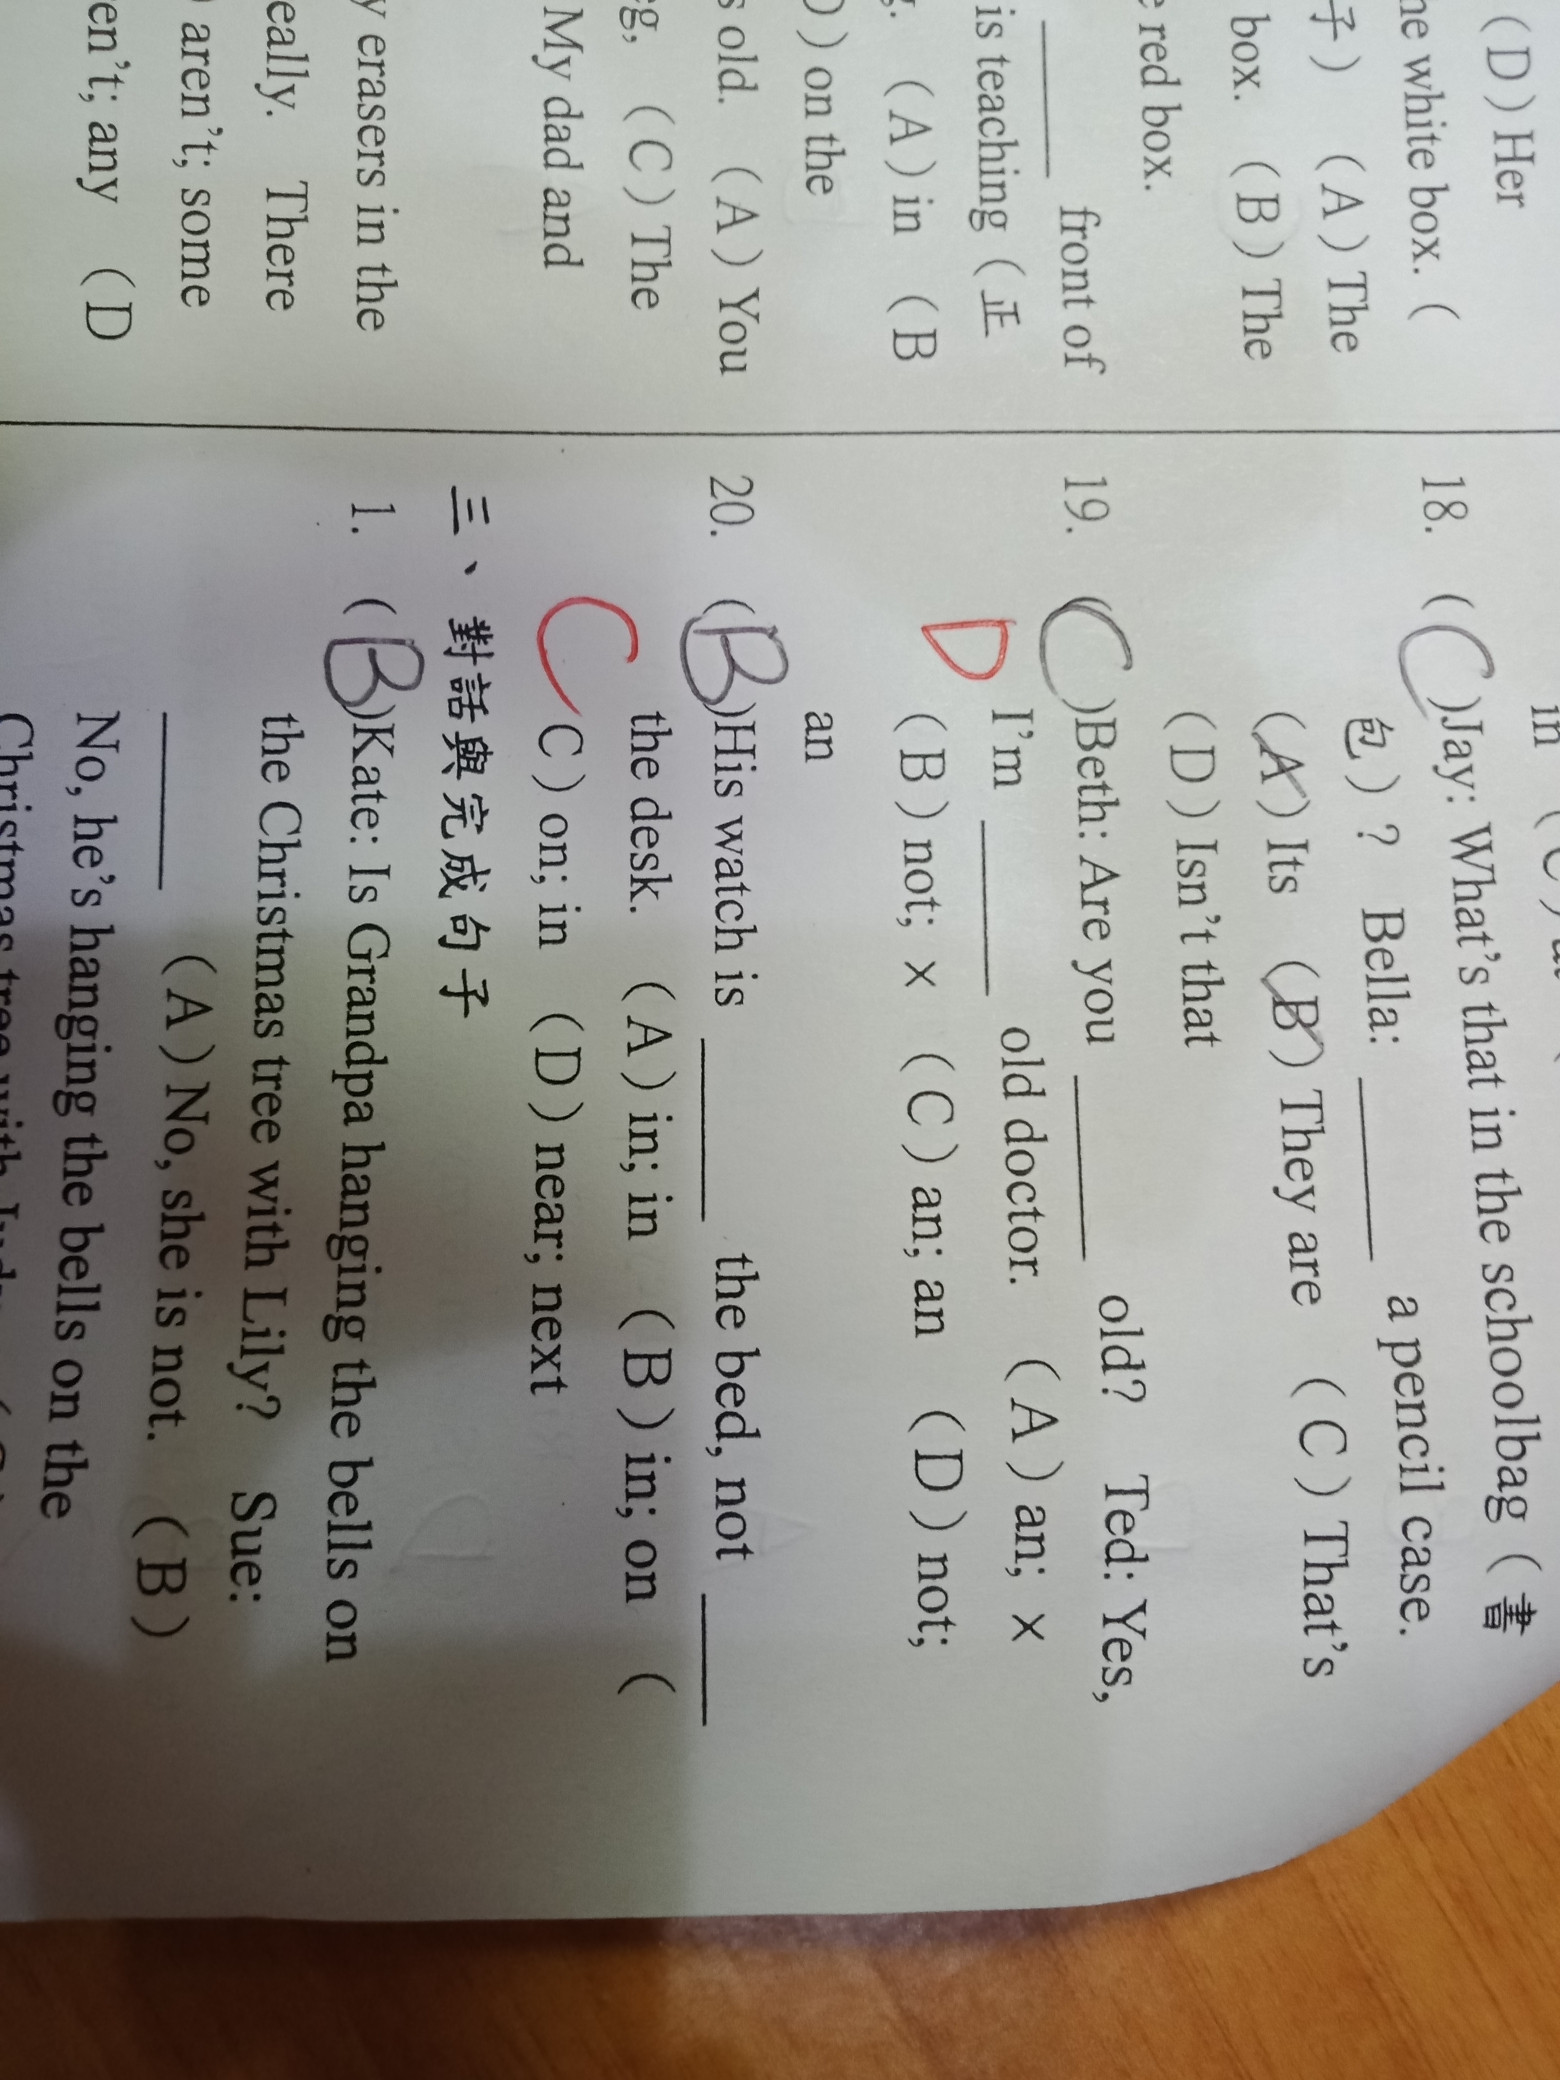 (D) Her
he white box. (
子) (A) The
box. (B) The
e red box.
front of
is teaching (正
g. (A) in (B
D) on the
s old. (A) You
g, (C) The
My dad and
y erasers in the
eally. There
) aren't; some
en't; any (D
in
18. (C)Jay: What's that in the schoolbag (書
包)? Bella: ______ a pencil case.
(A) Its (B) They are (C) That's
(D) Isn't that
19. (C)Beth: Are you ______ old? Ted: Yes,
I'm ______ old doctor. (A) an; ×
D
(B) not; × (C) an; an (D) not;
an
20. (B)His watch is ______ the bed, not ______
the desk. (A) in; in (B) in; on (
C
C) on; in (D) near; next
三、對話與完成句子
1. (B)Kate: Is Grandpa hanging the bells on
the Christmas tree with Lily? Sue:
______ (A) No, she is not. (B)
No, he's hanging the bells on the
Christmas tree with